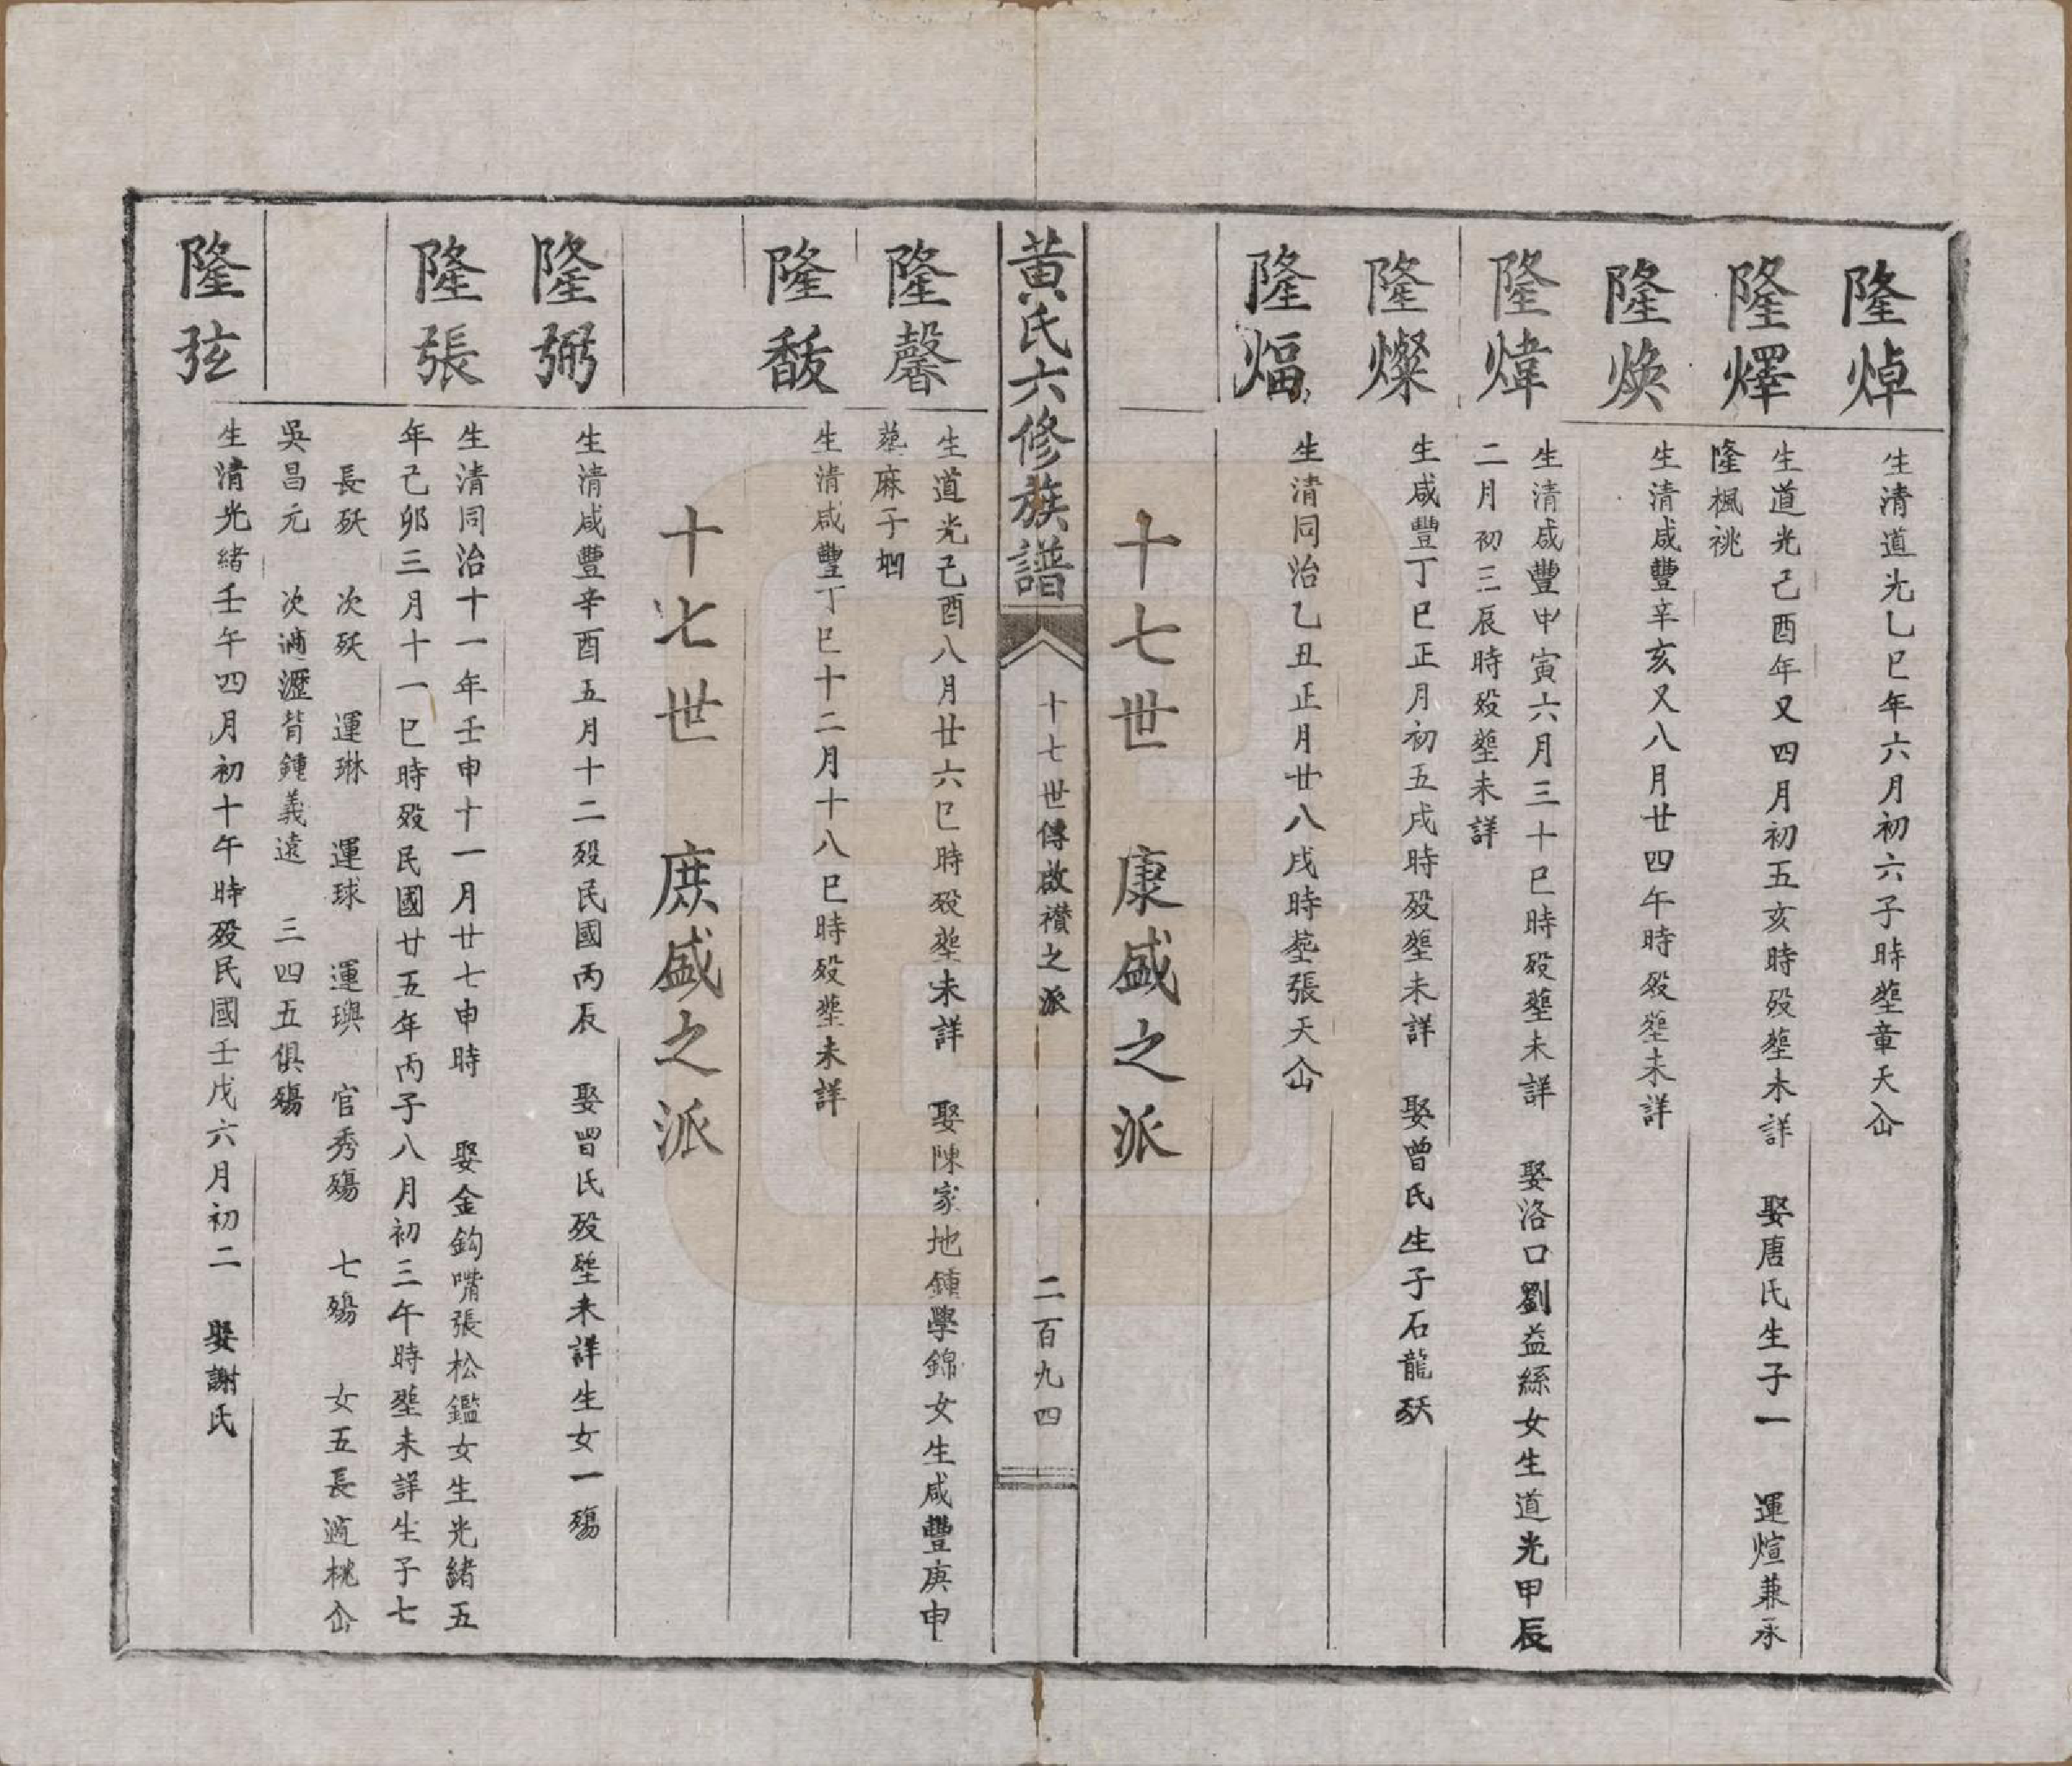 隆焯
生清道光乙巳年六月初六子時塟章天仚
隆燡
生道光己酉年又四月初五亥時殁塟未詳 娶唐氏生子一 運煊兼承
隆楓祧
隆焕
生清咸豐辛亥又八月廿四午時殁塟未詳
隆煒
生清咸豐甲寅六月三十巳時殁塟未詳 娶洛口劉益絲女生道光甲辰
二月初三辰時殁塟未詳
隆燦
生咸豐丁巳正月初五戌時殁塟未詳 娶曾氏生子石龍殀
隆煏
生清同治乙丑正月廿八戌時塟張天仚
十七世 康盛之派
黄氏六修族譜
十七世傳啟禶之派
二百九四
隆馨
生道光己酉八月廿六巳時殁塟未詳 娶陳家地鍾學錦女生咸豐庚申
塟麻子堋
隆馥
生清咸豐丁巳十二月十八巳時殁塟未詳
十七世 庶盛之派
隆弼
生清咸豐辛酉五月十二殁民國丙辰 娶曾氏殁塟未詳生女一殤
隆張
生清同治十一年壬申十一月廿七申時 娶金鈎嘴張松鑑女生光緒五
年己卯三月十一巳時殁民國廿五年丙子八月初三午時塟未詳生子七
長殀 次殀 運琳 運球 運璵 官秀殤 七殤 女五長適桃仚
吳昌元 次適瀝背鍾義遠 三四五俱殤
隆弦
生清光緒壬午四月初十午時殁民國壬戌六月初二 娶謝氏